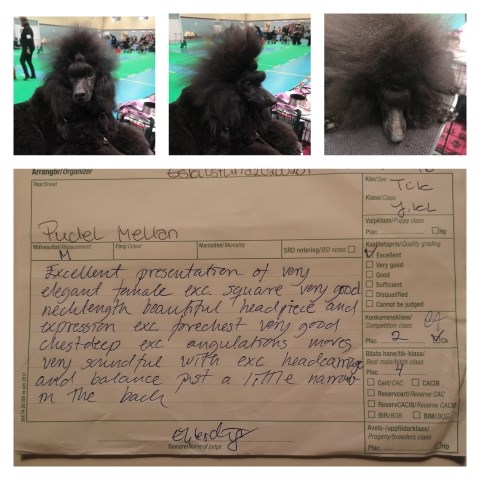 Arrangör/Organizer
Eskilstuna
Ras/Breed
Pudel Mellan
Kön/Sex
Tik
Klass/Class
Valpklass/Puppy class
Plac HP
Mätresultat/Measurement
M
Färg/Colour
Mentalitet/Mentality
SRD notering/BSI notes
Kvalitetspris/Quality grading
Excellent
Very good
Good
Sufficient
Disqualified
Cannot be judged
Excellent presentation of very
elegant female exc square very good
necklength beautiful headpiece and
expression exc forechest very good
chestdeep exc angulations moves
very soundful with exc headcarriage
and balance just a little narrow
in the back
Konkurrensklass/
Competition class
Plac 2 Ck
Bästa hann/tik-klass/
Best male/bitch class
Plac 4
Cert/CAC CACIB
Reservcert/Reserve CAC
ReservCACIB/Reserve CACIB
BIR/BOB BIM/BOS
Avels-/uppfödarklass/
Progeny/breeders class
Plac Hp
Domare/Name of Judge